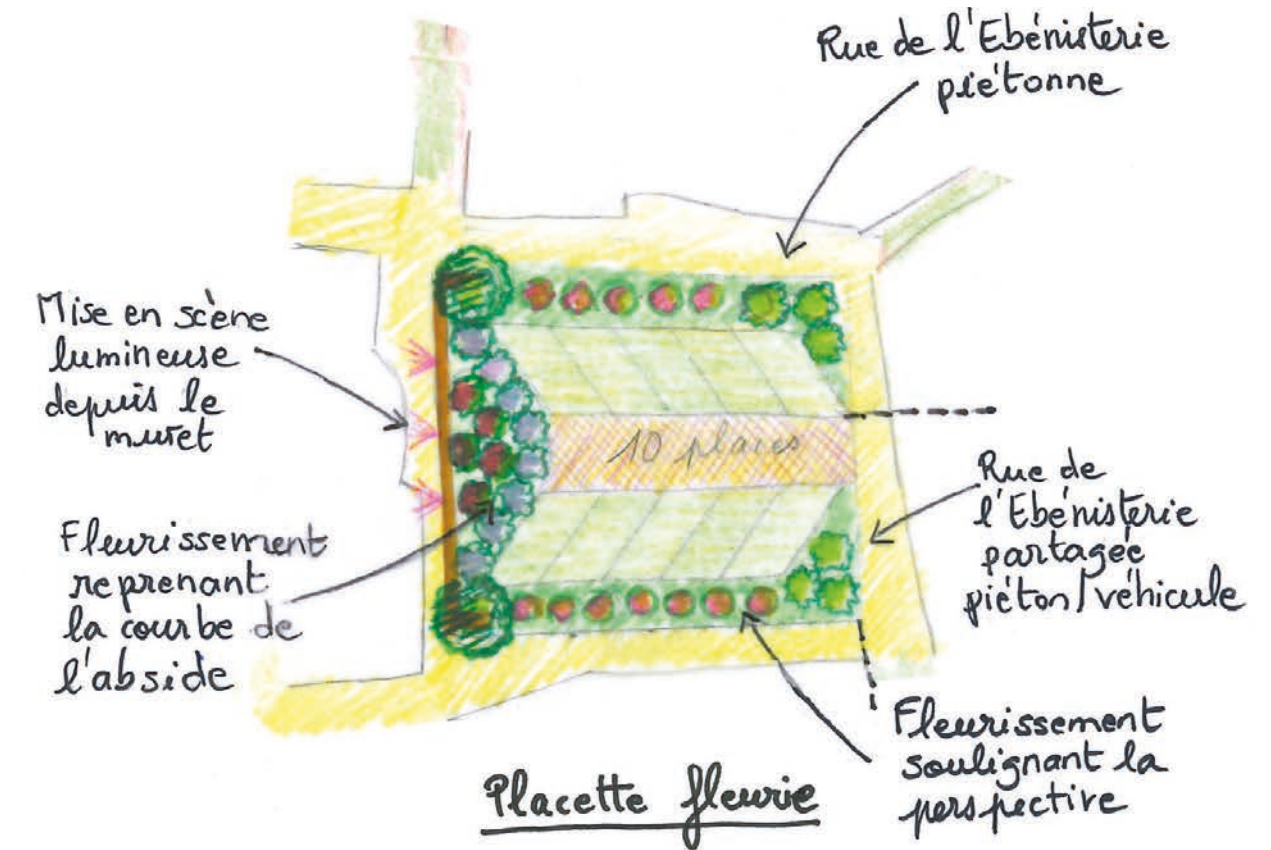 Rue de l'Ebénisterie
piétonne
Mise en scène
lumineuse
depuis le
muret
10 places
Rue de
l'Ebénisterie
partagée
piéton/véhicule
Fleurissement
reprenant
la courbe de
l'abside
Fleurissement
soulignant la
perspective
Placette fleurie